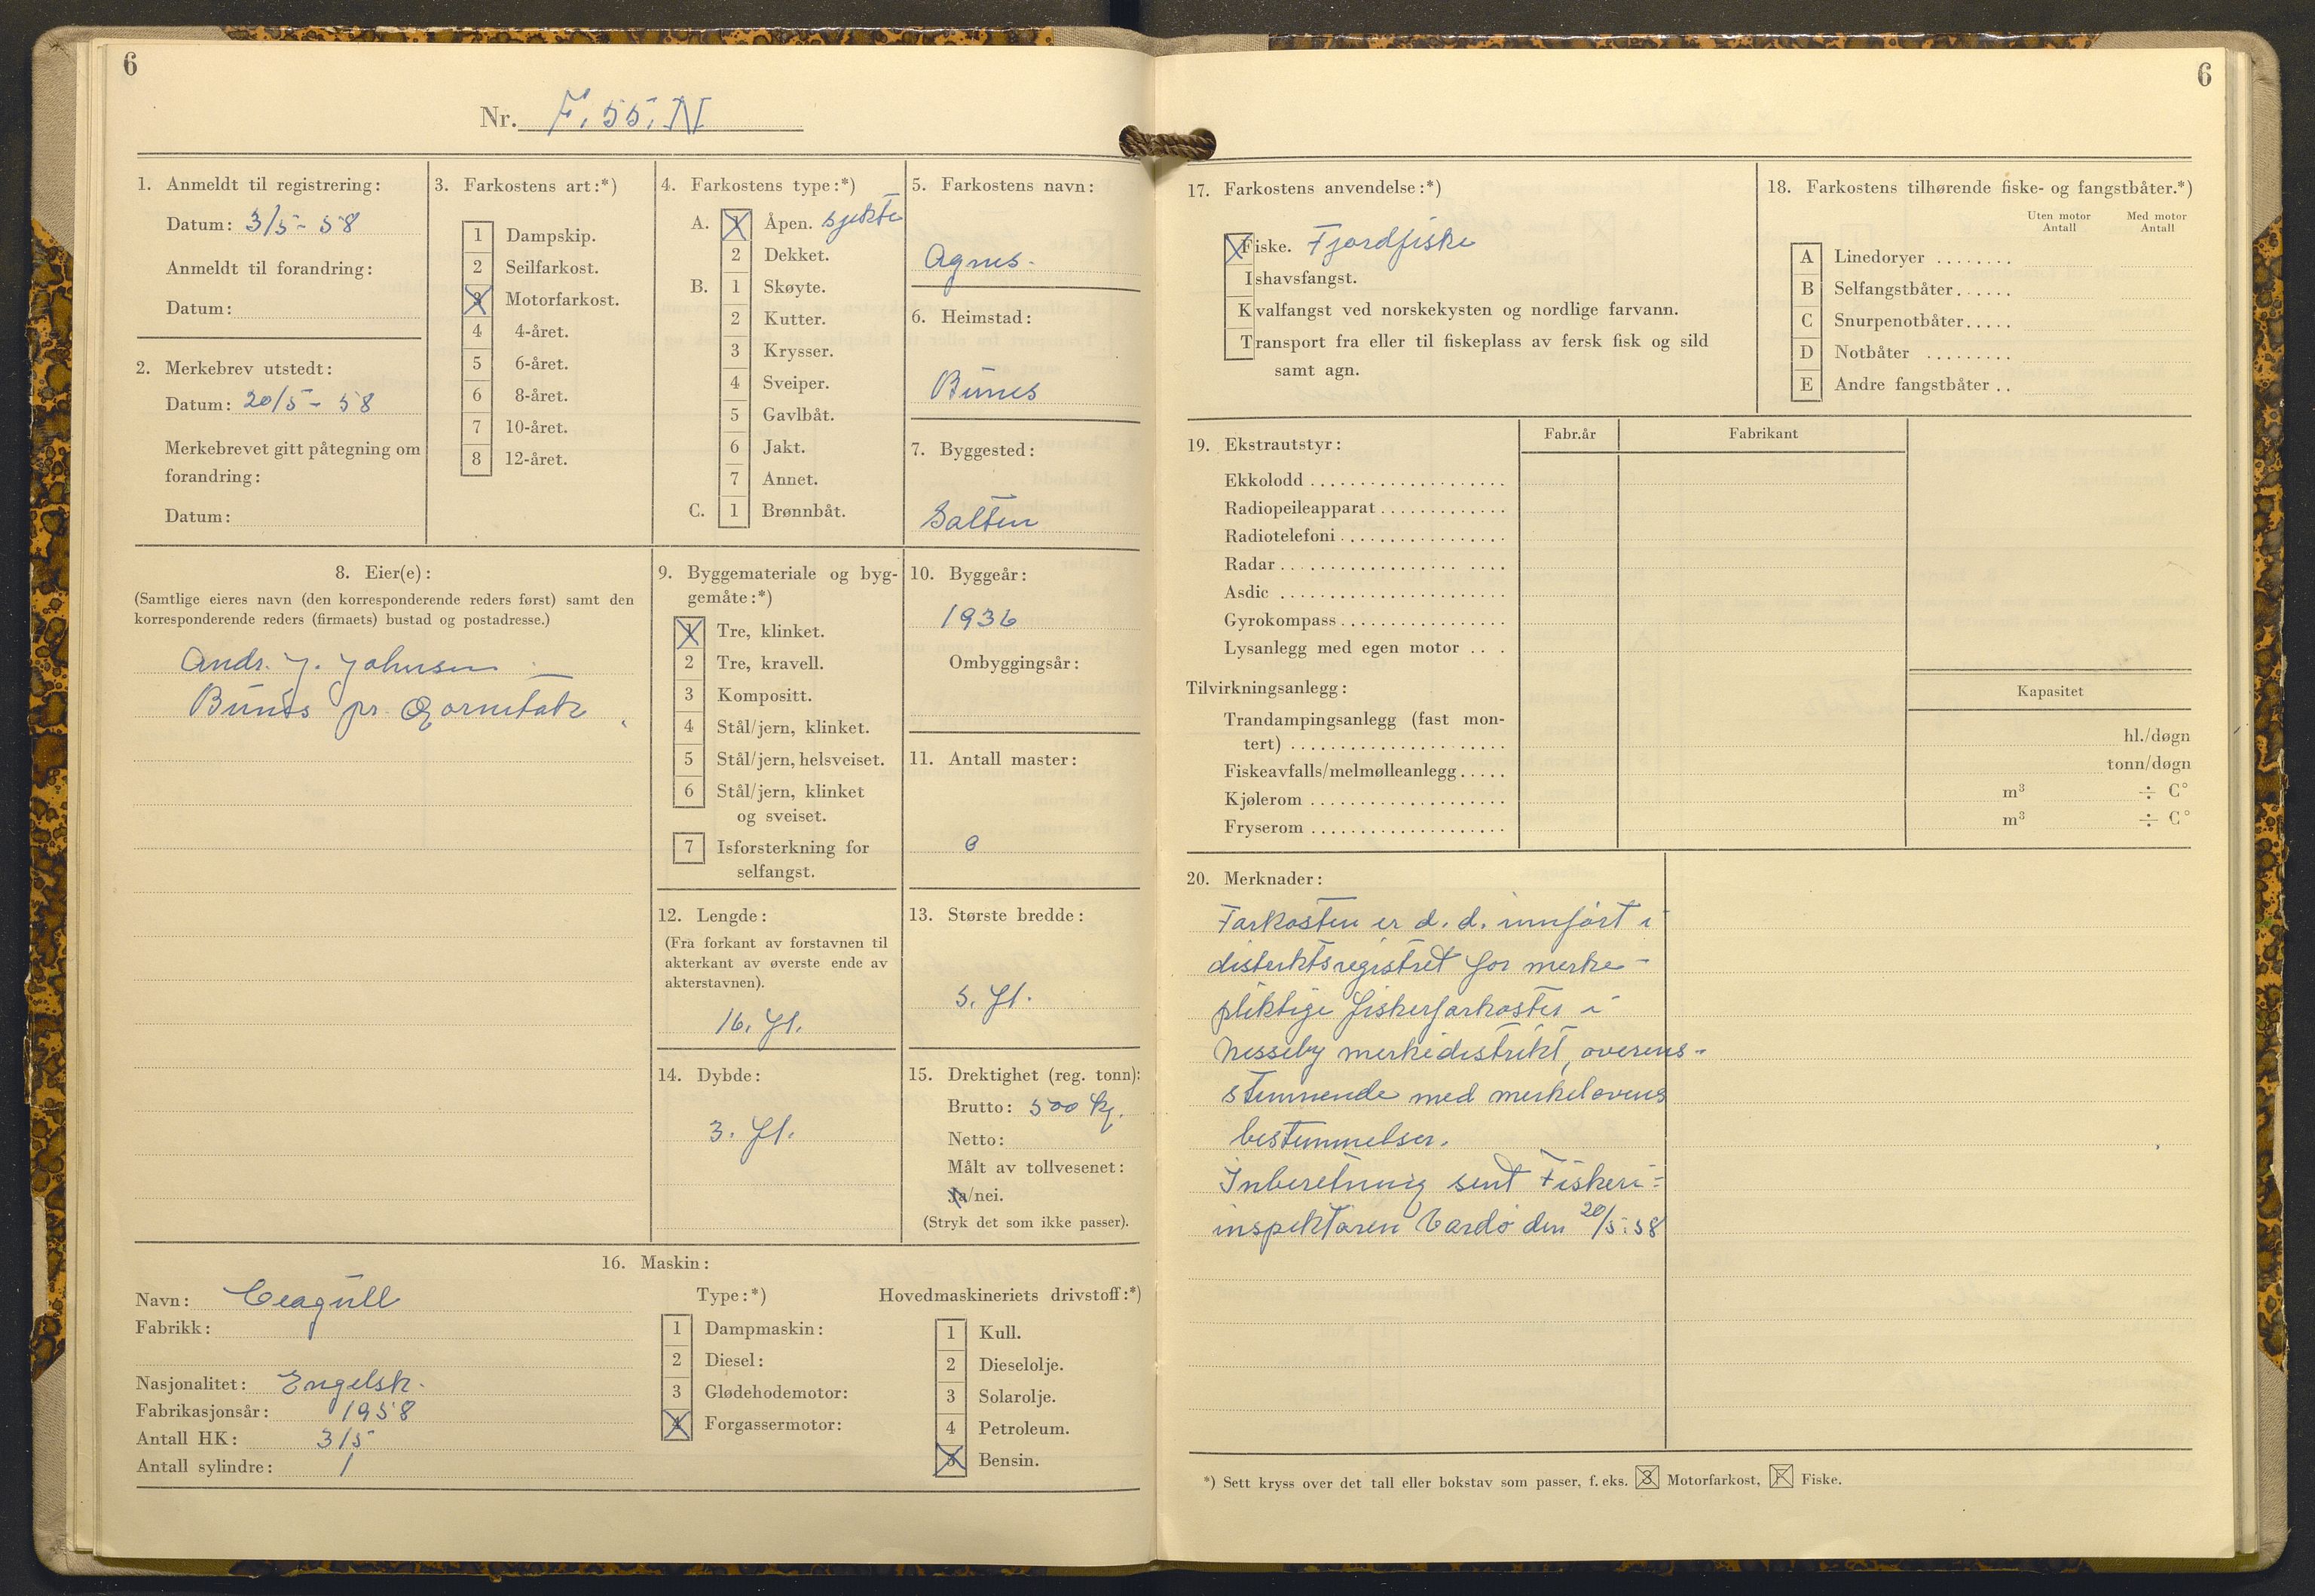 6
Nr. F. 55. N
1. Anmeldt til registrering:
Datum: 3/5 - 58
Anmeldt til forandring:
Datum:
2. Merkebrev utstedt:
Datum: 20/5 - 58
Merkebrevet gitt påtegning om
forandring:
Datum:
3. Farkostens art:*)
1 Dampskip.
2 Seilfarkost.
3 Motorfarkost.
4 4-året.
5 6-året.
6 8-året.
7 10-året.
8 12-året.
4. Farkostens type:*)
A. 1 Åpen. sjekte
2 Dekket.
B. 1 Skøyte.
2 Kutter.
3 Krysser.
4 Sveiper.
5 Gavlbåt.
6 Jakt.
7 Annet.
C. 1 Brønnbåt.
5. Farkostens navn:
Agnes.
6. Heimstad:
Bunes
7. Byggested:
Salten
8. Eier(e):
(Samtlige eieres navn (den korresponderende reders først) samt den
korresponderende reders (firmaets) bustad og postadresse.)
Andr. J. Johnsen
Bunes pr.
9. Byggemateriale og byg-
gemåte:*)
1 Tre, klinket.
2 Tre, kravell.
3 Kompositt.
4 Stål/jern, klinket.
5 Stål/jern, helsveiset.
6 Stål/jern, klinket
og sveiset.
7 Isforsterkning for
selfangst.
10. Byggeår:
1936
Ombyggingsår:
11. Antall master:
0
12. Lengde:
(Fra forkant av forstavnen til
akterkant av øverste ende av
akterstavnen).
16. ft.
13. Største bredde:
5. ft.
14. Dybde:
3. ft.
15. Drektighet (reg. tonn):
Brutto: 500 kg.
Netto:
Målt av tollvesenet:
Ja/nei.
(Stryk det som ikke passer).
16. Maskin:
Navn: Ceagull
Fabrikk:
Nasjonalitet: Engelsk.
Fabrikasjonsår: 1958
Antall HK: 3/5
Antall sylindre: 1
Type:*)
1 Dampmaskin:
2 Diesel:
3 Glødehodemotor:
4 Forgassermotor:
Hovedmaskineriets drivstoff:*)
1 Kull.
2 Dieselolje.
3 Solarolje.
4 Petroleum.
5 Bensin.
6
17. Farkostens anvendelse:*)
Fiske. Fjordfiske
Ishavsfangst.
Kvalfangst ved norskekysten og nordlige farvann.
Transport fra eller til fiskeplass av fersk fisk og sild
samt agn.
18. Farkostens tilhørende fiske- og fangstbåter.*)
Uten motor Med motor
Antall Antall
A Linedoryer ........
B Selfangstbåter......
C Snurpenotbåter.....
D Notbåter .........
E Andre fangstbåter ..
19. Ekstrautstyr:
Fabr.år Fabrikant
Ekkolodd ....................
Radiopeileapparat .............
Radiotelefoni .................
Radar .......................
Asdic .......................
Gyrokompass .................
Lysanlegg med egen motor ...
Tilvirkningsanlegg:
Kapasitet
Trandampingsanlegg (fast mon-
tert) ...................... hl./døgn
Fiskeavfalls/melmølleanlegg..... tonn/døgn
Kjølerom .................... m³ ÷ C°
Fryserom .................... m³ ÷ C°
20. Merknader:
Farkosten er d. d. innført i
disterktsregistret for merke-
pliktige fiskerfarkoster i
Nesseby merkedistrikt, overens-
stemmende med merkelovens
bestemmelser.
Inberetning sent Fiskeri-
inspektøren Vardø den 20/5.58
*) Sett kryss over det tall eller bokstav som passer, f. eks. 3 Motorfarkost, F Fiske.